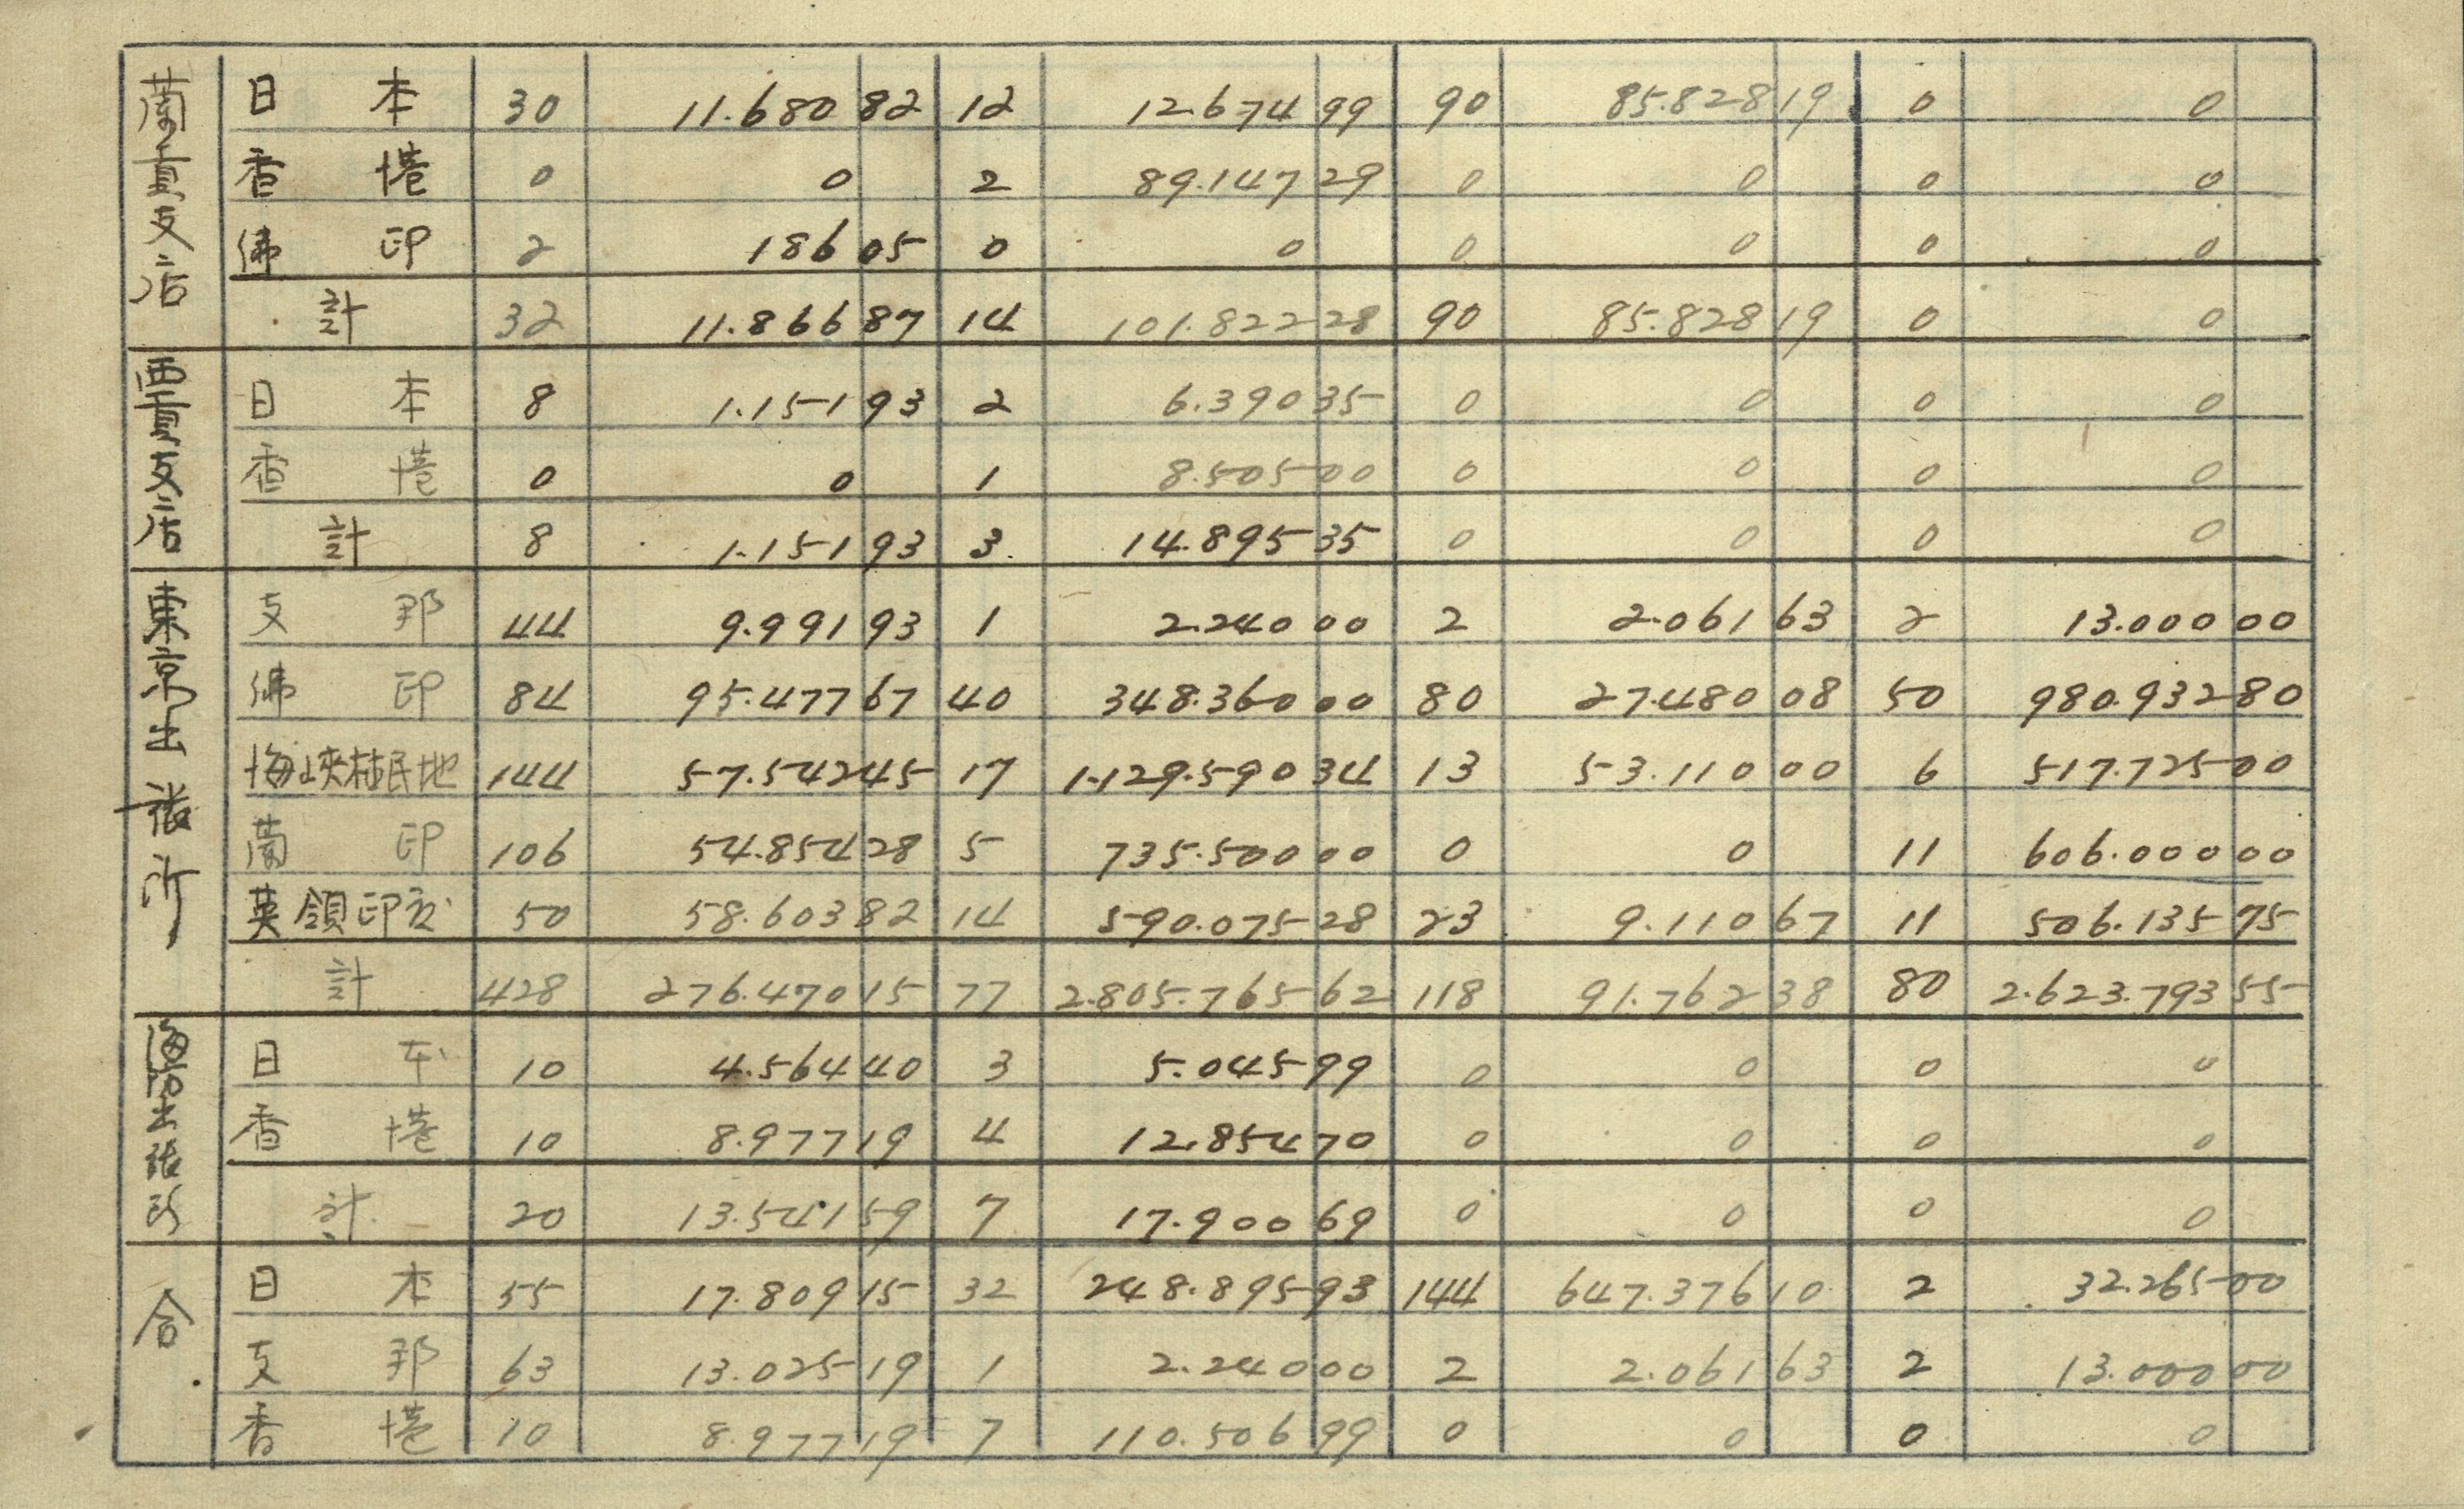 蘭貢支店 日本 30 11.680 82 12 12.674 99 90 85.828 19 0 0
香港 0 0 2 89.147 29 0 0 0 0
佛印 2 186 05 0 0 0 0 0 0
計 32 11.866 87 14 101.822 28 90 85.828 19 0 0
西貢支店 日本 8 1.151 93 2 6.390 35 0 0 0 0
香港 0 0 1 8.505 00 0 0 0 0
計 8 1.151 93 3 14.895 35 0 0 0 0
東京出張所 支那 44 9.991 93 1 2.240 00 2 2.061 63 2 13.000 00
佛印 84 95.477 67 40 348.360 00 80 27.480 08 50 980.932 80
海峽植民地 144 57.542 45 17 1.129.590 34 13 53.110 00 6 517.725 00
蘭印 106 54.854 28 5 735.500 00 0 0 11 606.000 00
英領印度 50 58.603 82 14 590.075 28 23 9.110 67 11 506.135 75
計 428 276.470 15 77 2.805.765 62 118 91.762 38 80 2.623.793 55
海防出張所 日本 10 4.564 40 3 5.045 99 0 0 0 0
香港 10 8.977 19 4 12.854 70 0 0 0 0
計 20 13.541 59 7 17.900 69 0 0 0 0
合 日本 55 17.809 15 32 248.895 93 144 647.376 10 2 32.265 00
支那 63 13.025 19 1 2.240 00 2 2.061 63 2 13.000 00
香港 10 8.977 19 7 110.506 99 0 0 0 0